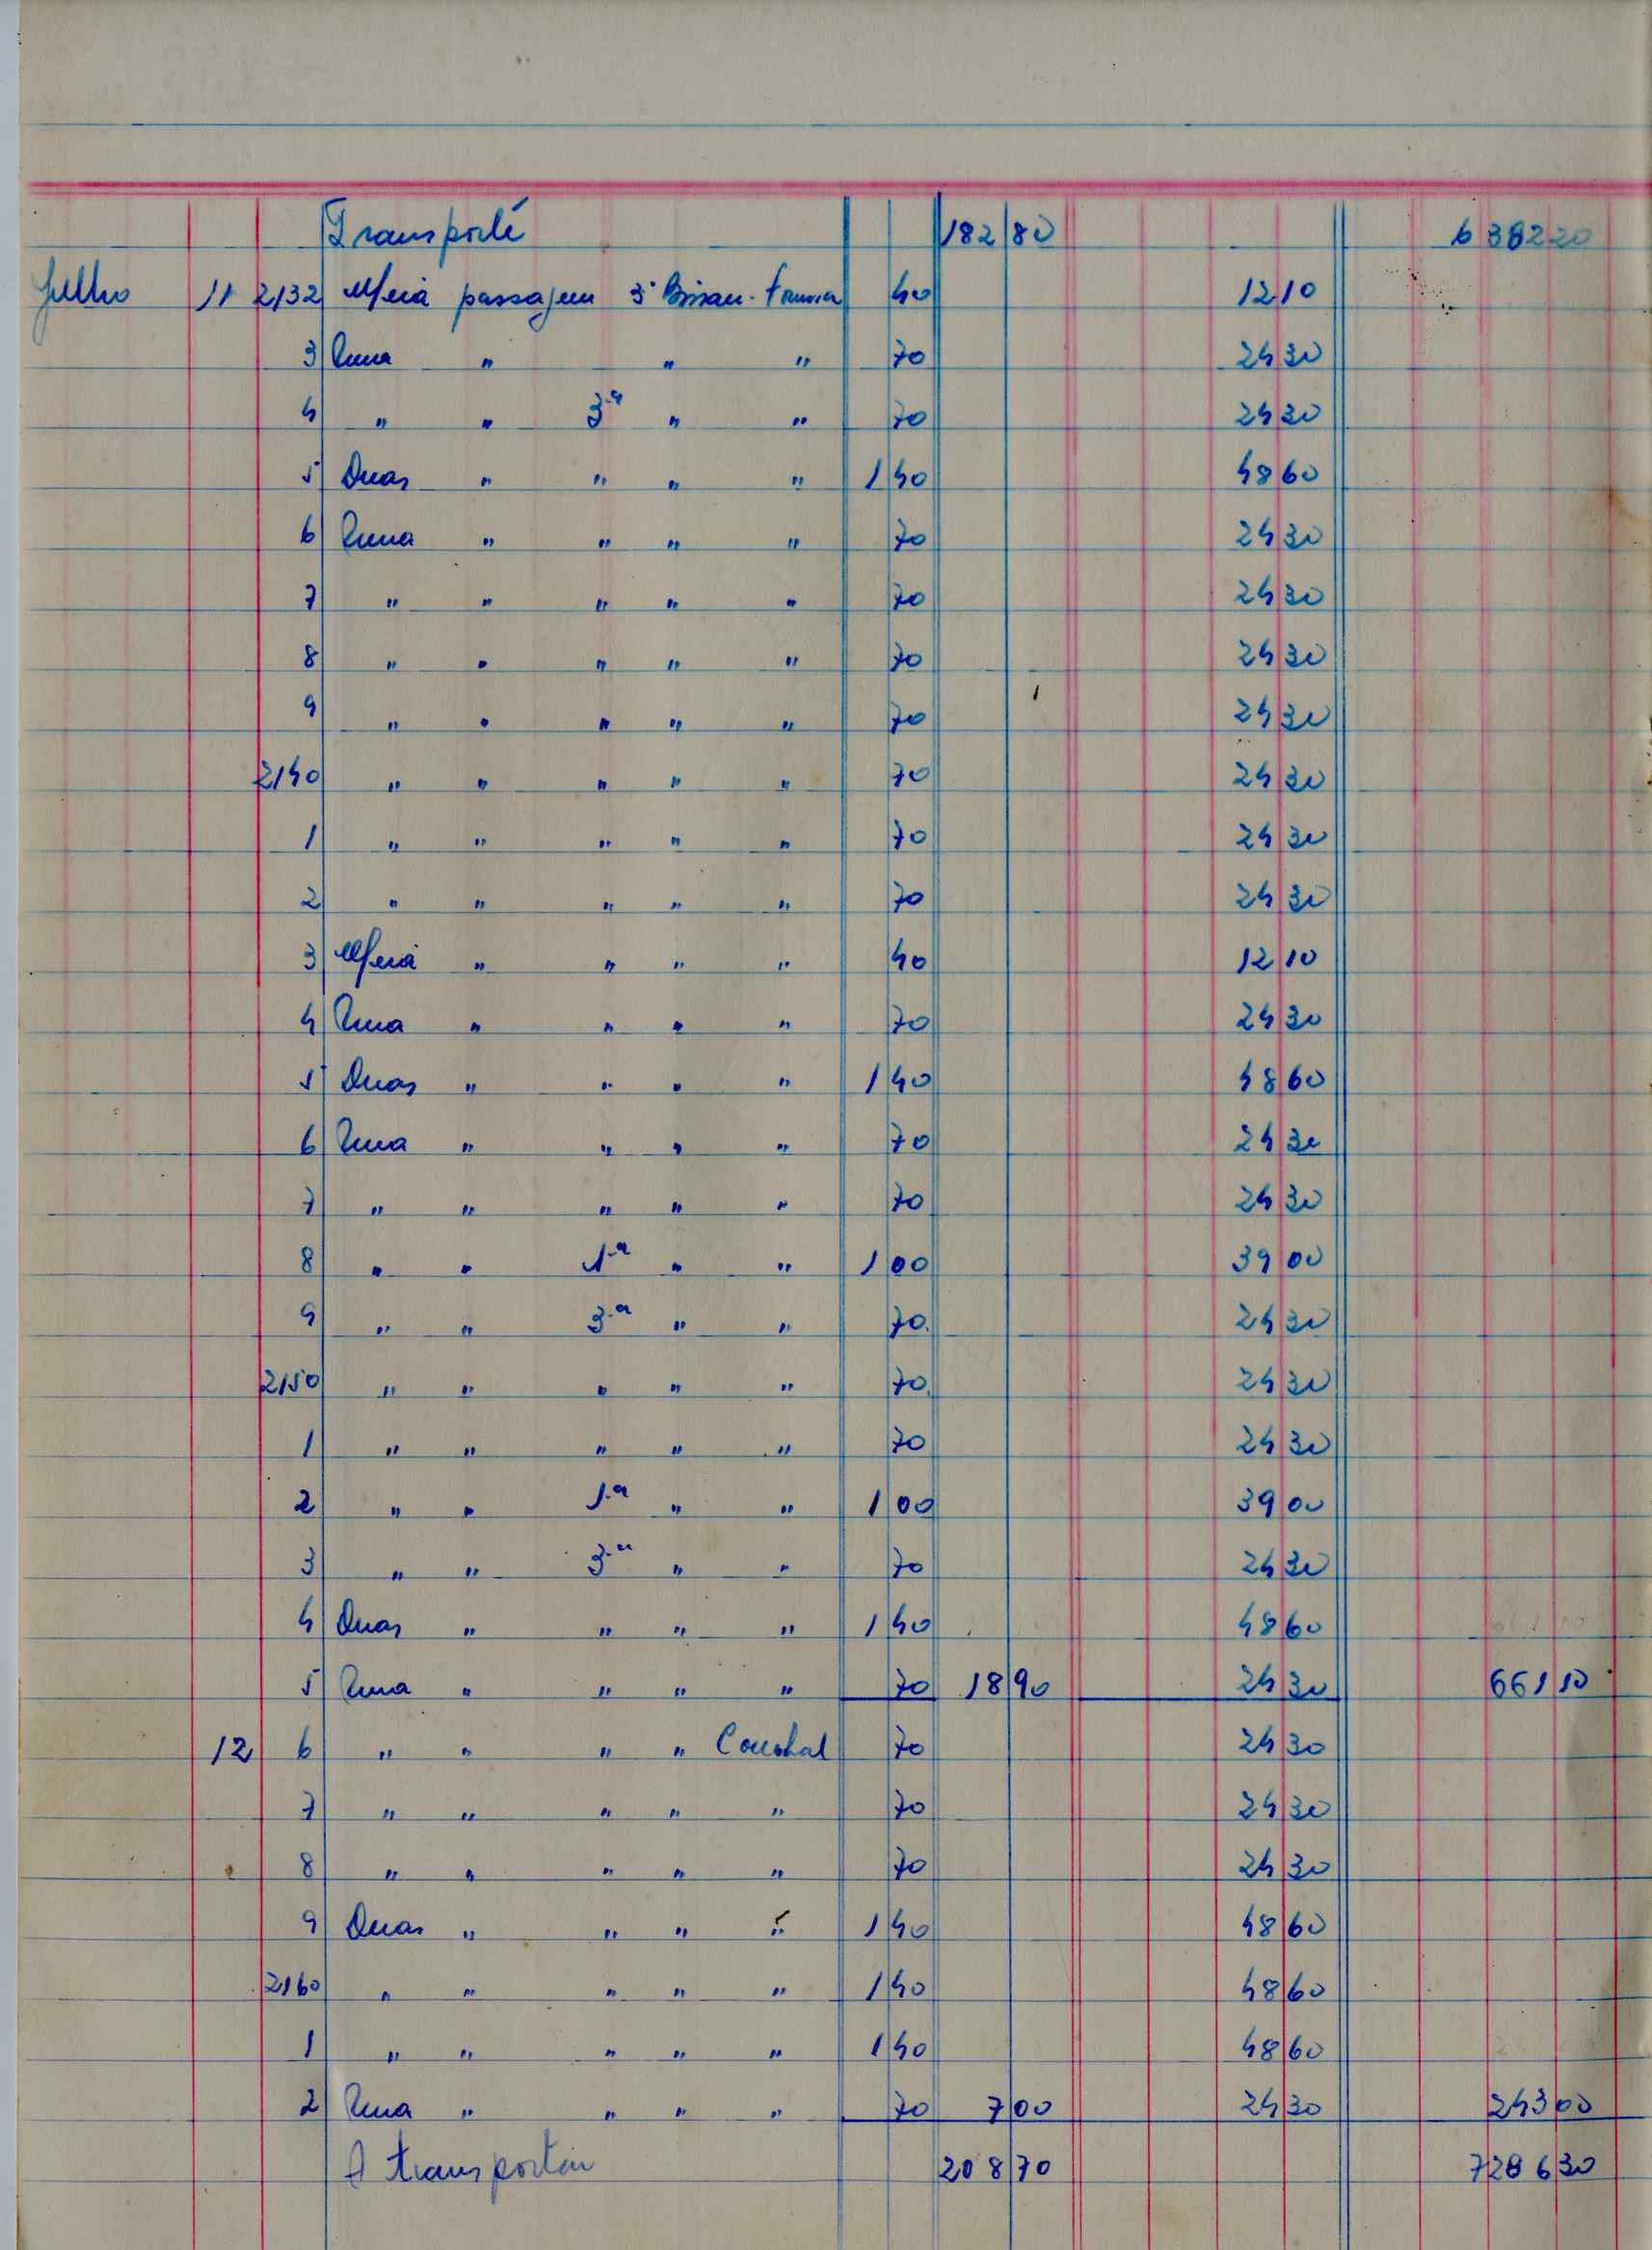 Transporte 182 80 638220
Julho 11 2132 Meia passagem 3ª Bissau - 40 1210
3 Uma " " " 70 2430
4 " " 3ª " " 70 2430
5 Duas " " " " 140 4860
6 Uma " " " " 70 2430
7 " " " " " 70 2430
8 " " " " " 70 2430
9 " " " " " 70 2430
2140 " " " " " 70 2430
1 " " " " " 70 2430
2 " " " " " 70 2430
3 Meia " " " " 40 1210
4 Uma " " " " 70 2430
5 Duas " " " " 140 4860
6 Uma " " " " 70 2430
7 " " " " " 70 2430
8 " " 1ª " " 100 3900
9 " " 3ª " " 70 2430
2150 " " " " " 70 2430
1 " " " " " 70 2430
2 " " 1ª " " 100 3900
3 " " 3ª " " 70 2430
4 Duas " " " " 140 4860
5 Uma " " " " 70 18 90 2430 66110
12 6 " " " " 70 2430
7 " " " " " 70 2430
8 " " " " " 70 2430
9 Duas " " " " 140 4860
2160 " " " " " 140 4860
1 " " " " " 140 4860
2 Uma " " " " 70 7 00 2430 24300
A transportar 208 70 728630